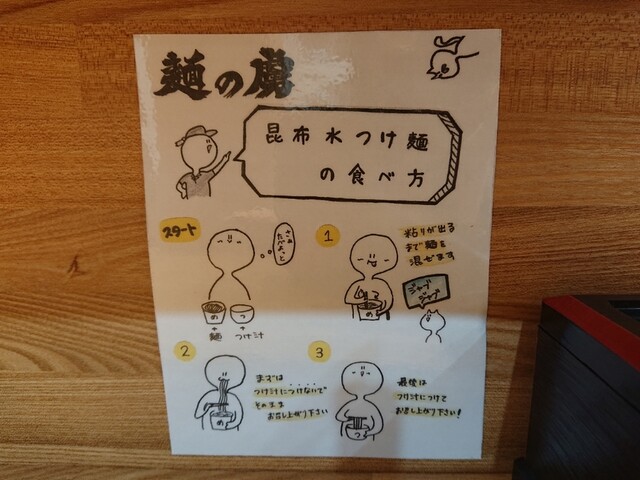 麺の虜
昆布水つけ麺
の食べ方
スタート
さぁ
たべよっと
め
つ
麺
つけ汁
1
粘りが出る
まで麺を
混ぜます
ジャブ
ジャブ
め
2
まずは
つけ汁につけないで
そのまま
お召し上がり下さい
め
3
最後は
つけ汁につけて
お召し上がり下さい!
つ